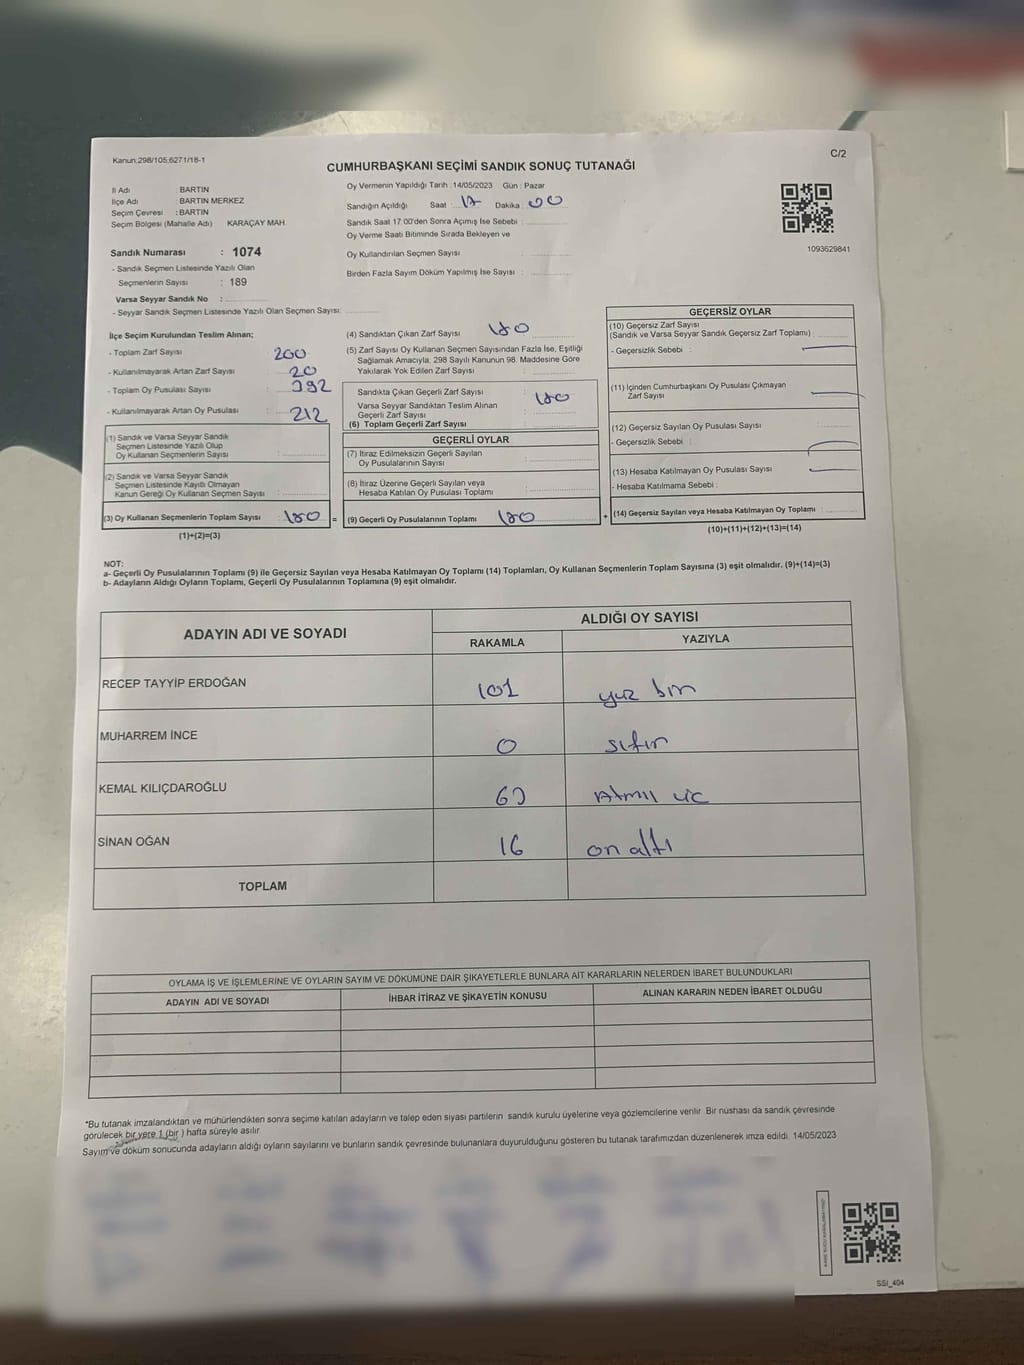 Kanun:298/105;6271/18-1
C/2
CUMHURBAŞKANI SEÇİMİ SANDIK SONUÇ TUTANAĞI
İl Adı : BARTIN
İlçe Adı : BARTIN MERKEZ
Seçim Çevresi : BARTIN
Seçim Bölgesi (Mahalle Adı) KARAÇAY MAH.
Sandık Numarası : 1074
- Sandık Seçmen Listesinde Yazılı Olan
Seçmenlerin Sayısı : 189
Varsa Seyyar Sandık No :
- Seyyar Sandık Seçmen Listesinde Yazılı Olan Seçmen Sayısı:
Oy Vermenin Yapıldığı Tarih : 14/05/2023 Gün : Pazar
Sandığın Açıldığı Saat : 17 Dakika : 00
Sandık Saat 17:00'den Sonra Açımış İse Sebebi :
Oy Verme Saati Bitiminde Sırada Bekleyen ve
Oy Kullandırılan Seçmen Sayısı :
Birden Fazla Sayım Döküm Yapılmış İse Sayısı :
1093629841
İlçe Seçim Kurulundan Teslim Alınan;
- Toplam Zarf Sayısı : 200
- Kullanılmayarak Artan Zarf Sayısı : 20
- Toplam Oy Pusulası Sayısı : 392
- Kullanılmayarak Artan Oy Pusulası : 212
(1) Sandık ve Varsa Seyyar Sandık
Seçmen Listesinde Yazılı Olup
Oy Kullanan Seçmenlerin Sayısı :
(2) Sandık ve Varsa Seyyar Sandık
Seçmen Listesinde Kayıtlı Olmayan
Kanun Gereği Oy Kullanan Seçmen Sayısı :
(3) Oy Kullanan Seçmenlerin Toplam Sayısı : 180 =
(1)+(2)=(3)
(4) Sandıktan Çıkan Zarf Sayısı : 180
(5) Zarf Sayısı Oy Kullanan Seçmen Sayısından Fazla İse, Eşitliği
Sağlamak Amacıyla, 298 Sayılı Kanunun 98. Maddesine Göre
Yakılarak Yok Edilen Zarf Sayısı :
Sandıkta Çıkan Geçerli Zarf Sayısı : 180
Varsa Seyyar Sandıktan Teslim Alınan
Geçerli Zarf Sayısı :
(6) Toplam Geçerli Zarf Sayısı :
GEÇERLİ OYLAR
(7) İtiraz Edilmeksizin Geçerli Sayılan
Oy Pusulalarının Sayısı :
(8) İtiraz Üzerine Geçerli Sayılan veya
Hesaba Katılan Oy Pusulası Toplamı :
(9) Geçerli Oy Pusulalarının Toplamı : 180 +
GEÇERSİZ OYLAR
(10) Geçersiz Zarf Sayısı
(Sandık ve Varsa Seyyar Sandık Geçersiz Zarf Toplamı) :
- Geçersizlik Sebebi :
(11) İçinden Cumhurbaşkanı Oy Pusulası Çıkmayan
Zarf Sayısı :
(12) Geçersiz Sayılan Oy Pusulası Sayısı :
- Geçersizlik Sebebi :
(13) Hesaba Katılmayan Oy Pusulası Sayısı :
- Hesaba Katılmama Sebebi :
(14) Geçersiz Sayılan veya Hesaba Katılmayan Oy Toplamı :
(10)+(11)+(12)+(13)=(14)
NOT:
a- Geçerli Oy Pusulalarının Toplamı (9) ile Geçersiz Sayılan veya Hesaba Katılmayan Oy Toplamı (14) Toplamları, Oy Kullanan Seçmenlerin Toplam Sayısına (3) eşit olmalıdır. (9)+(14)=(3)
b- Adayların Aldığı Oyların Toplamı, Geçerli Oy Pusulalarının Toplamına (9) eşit olmalıdır.
ADAYIN ADI VE SOYADI ALDIĞI OY SAYISI
RAKAMLA YAZIYLA
RECEP TAYYİP ERDOĞAN 101 yuz bın
MUHARREM İNCE 0 sıfır
KEMAL KILIÇDAROĞLU 63 Atmıl üc
SİNAN OĞAN 16 on altı
TOPLAM
OYLAMA İŞ VE İŞLEMLERİNE VE OYLARIN SAYIM VE DÖKÜMÜNE DAİR ŞİKAYETLERLE BUNLARA AİT KARARLARIN NELERDEN İBARET BULUNDUKLARI
ADAYIN ADI VE SOYADI İHBAR İTİRAZ VE ŞİKAYETİN KONUSU ALINAN KARARIN NEDEN İBARET OLDUĞU
*Bu tutanak imzalandıktan ve mühürlendikten sonra seçime katılan adayların ve talep eden siyasi partilerin sandık kurulu üyelerine veya gözlemcilerine verilir. Bir nüshası da sandık çevresinde
görülecek bir yere 1 (bir ) hafta süreyle asılır.
Sayım ve döküm sonucunda adayların aldığı oyların sayılarını ve bunların sandık çevresinde bulunanlara duyurulduğunu gösteren bu tutanak tarafımızdan düzenlenerek imza edildi. 14/05/2023
SSI_404